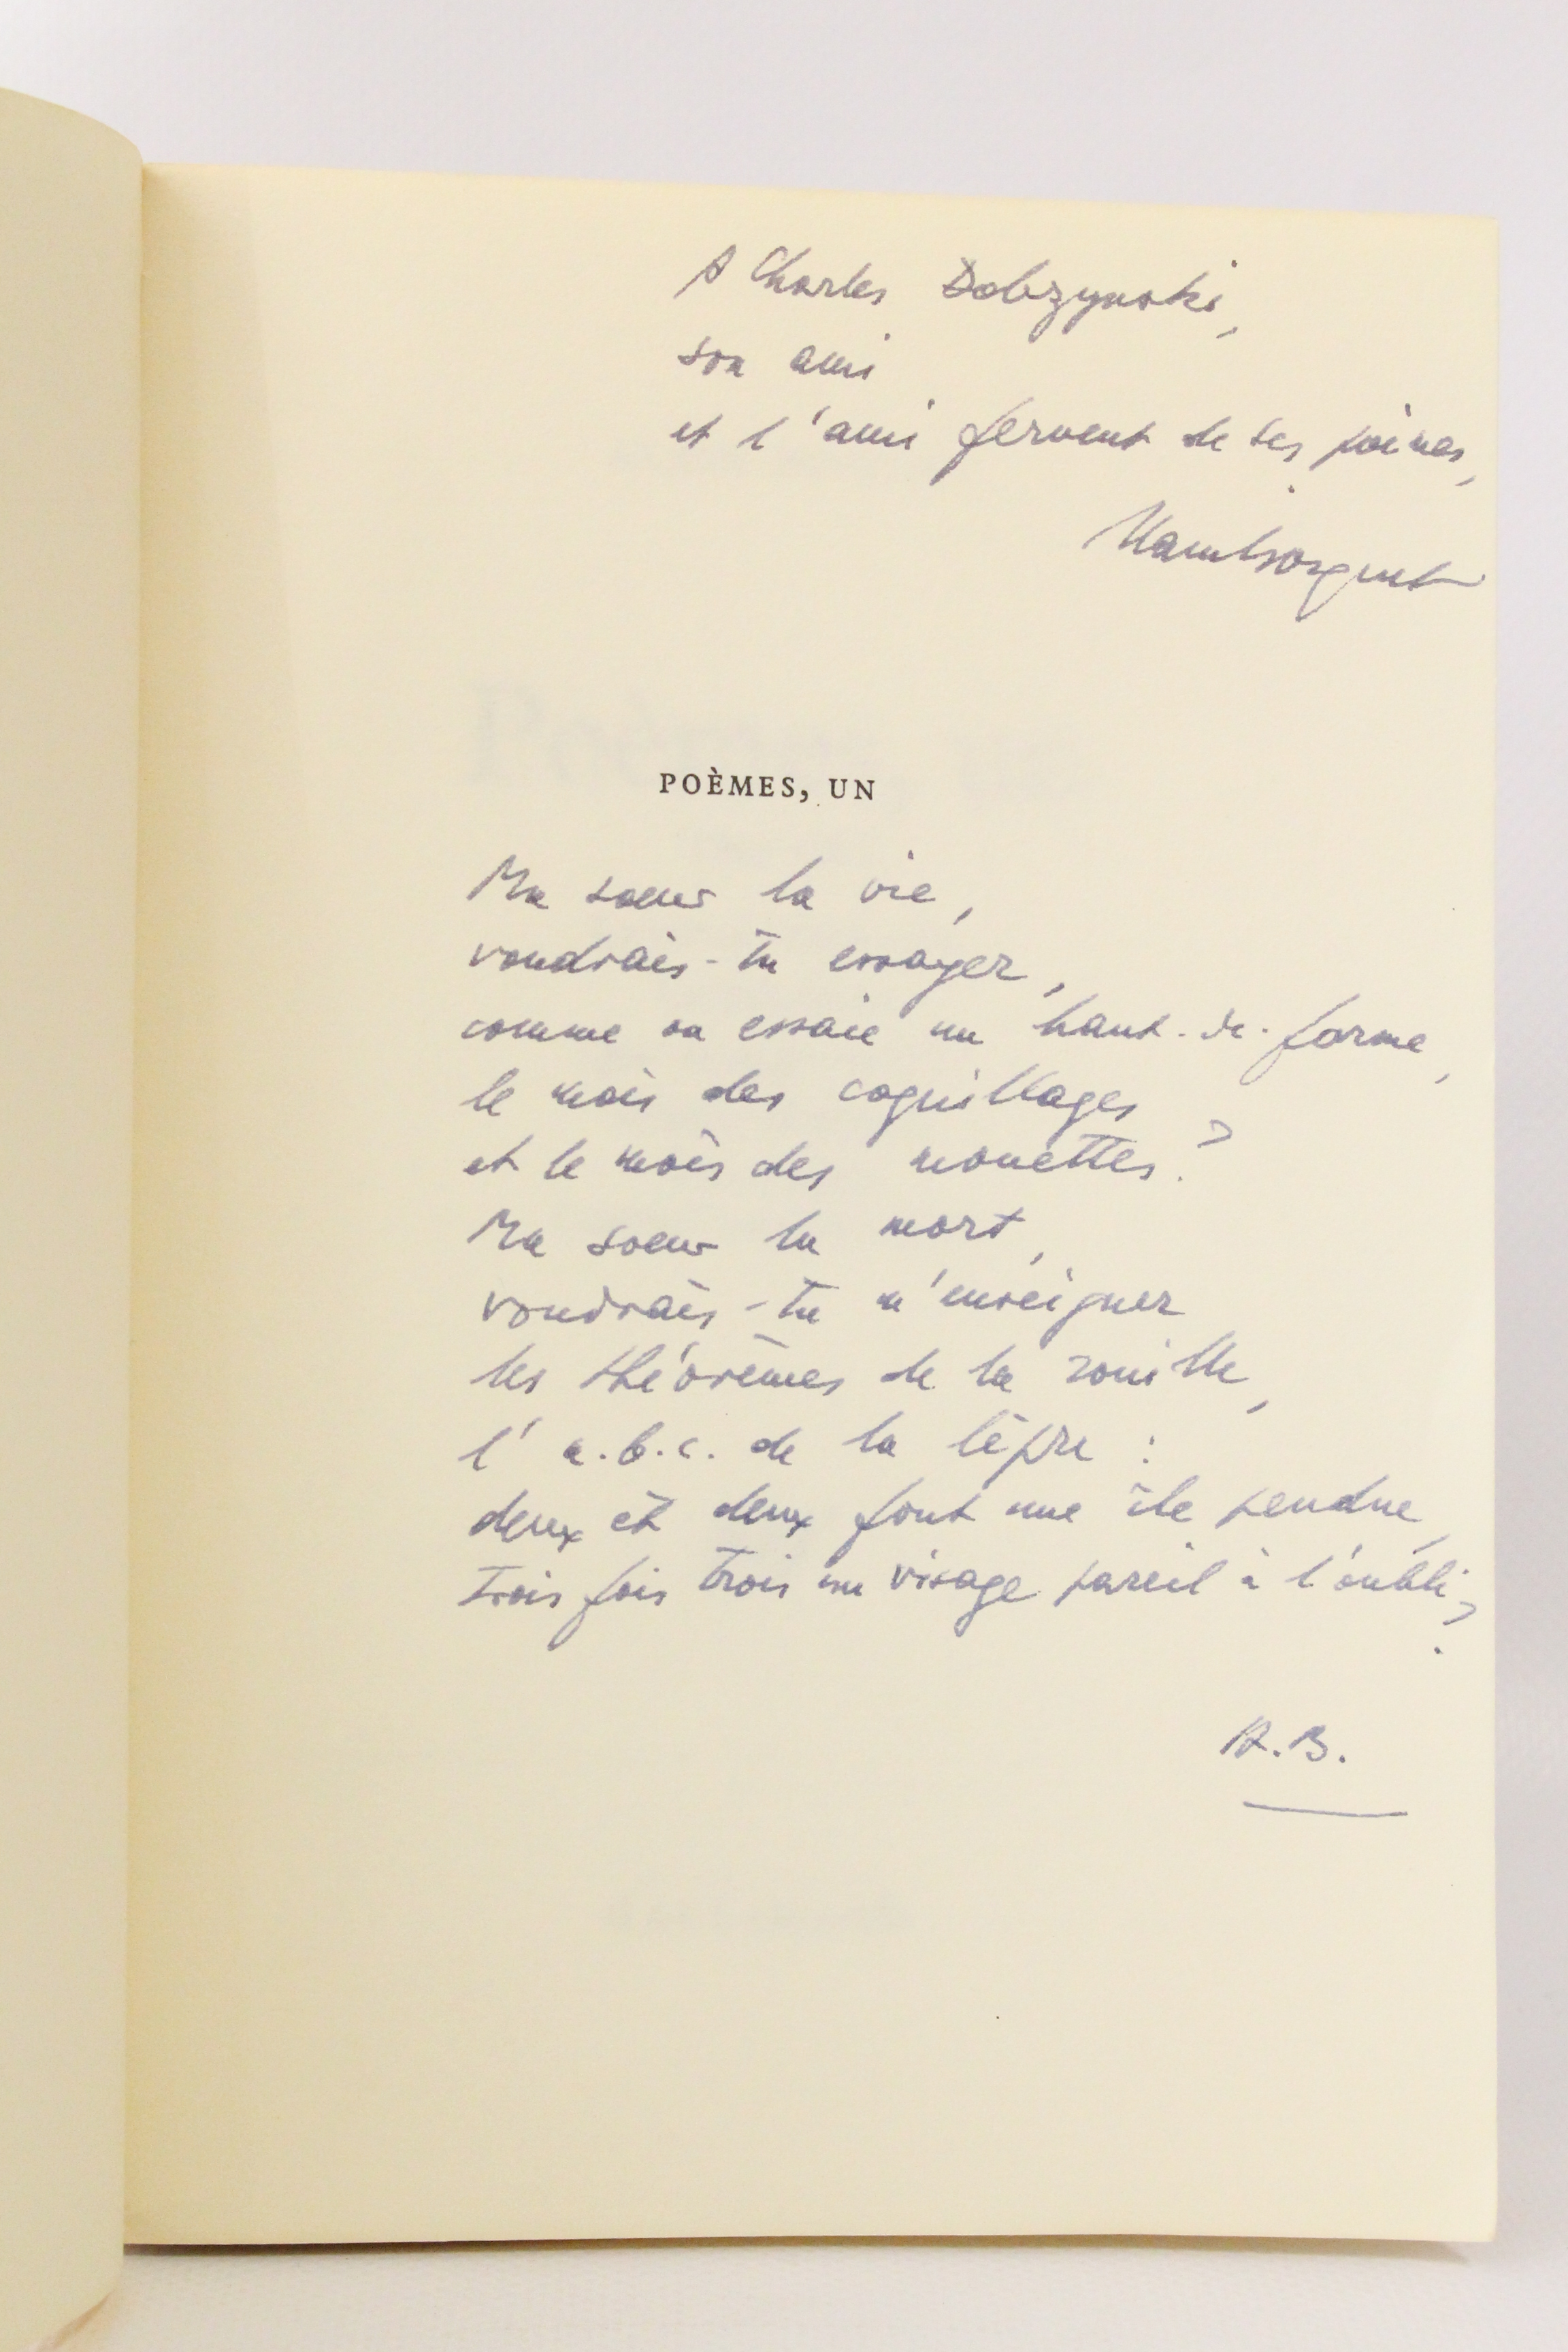 A Charles Dobzynski,
son ami
et l'ami fervent de ses poèmes,
POÈMES, UN
Ma soeur la vie,
voudrais-tu essayer,
comme on essaie un haut-de-forme,
le mois des coquillages
et le mois des mouettes?
Ma soeur la mort,
voudrais-tu m'enseigner
les théorèmes de la rouille,
l'a.b.c. de la lèpre :
deux et deux font une île pendue,
trois fois trois un visage pareil à l'oubli?
A.B.